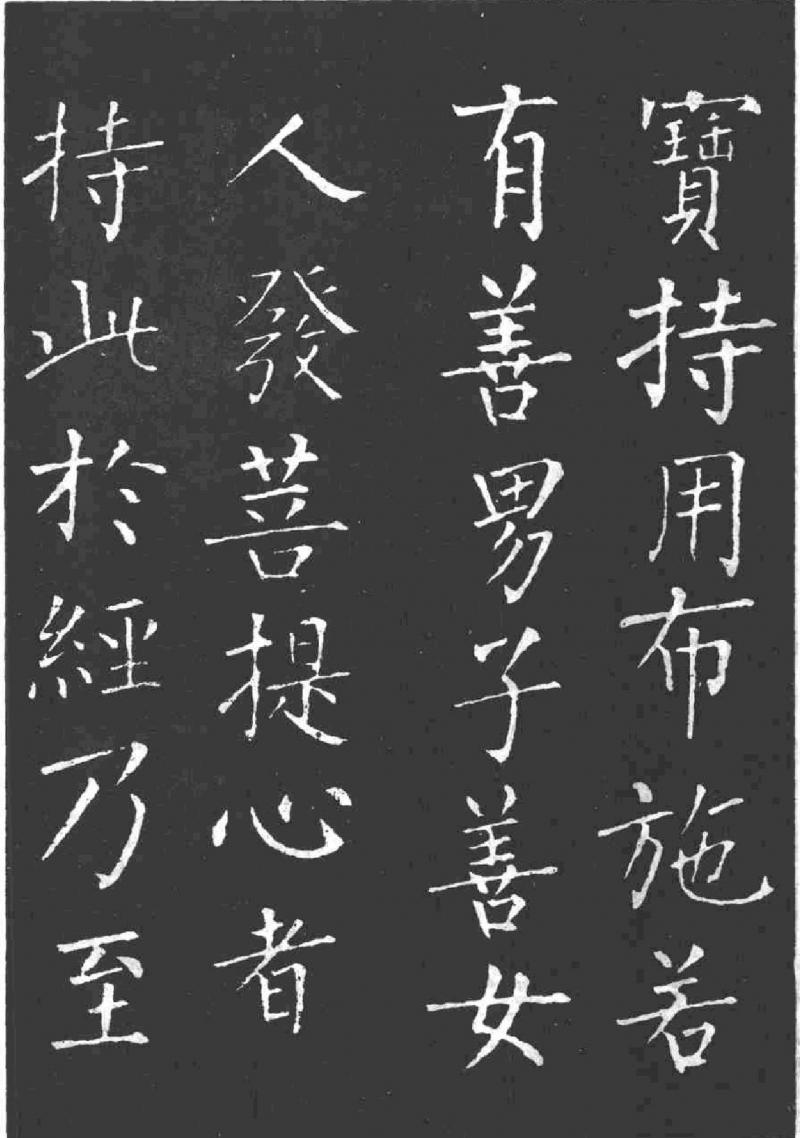 寶持用布施若
有善男子善女
人發菩提心者
持此於經乃至